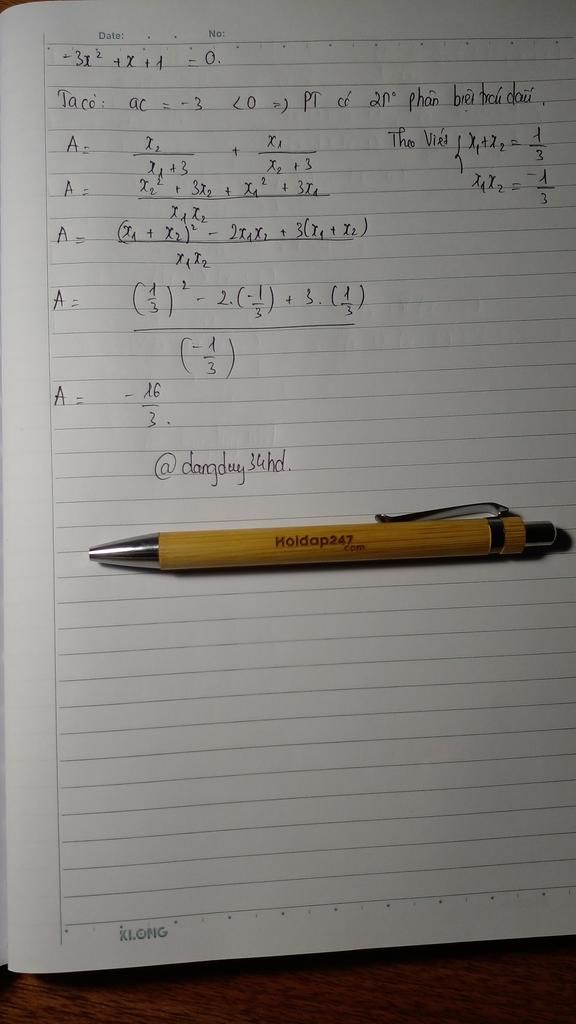 Date: . . No:
-3x² + x + 1 = 0.
Ta có: ac = -3 < 0 => PT có 2n° phân biệt trái dấu.
A = x₂/(x₁+3) + x₁/(x₂+3)
Theo Viét { x₁+x₂ = 1/3
x₁x₂ = -1/3
A = (x₂² + 3x₂ + x₁² + 3x₁)/(x₁x₂)
A = ((x₁ + x₂)² - 2x₁x₂ + 3(x₁ + x₂))/(x₁x₂)
A = ((1/3)² - 2.(-1/3) + 3.(1/3))/(-1/3)
A = -16/3.
@dangduy34hd.
Hoidap247
.com
KLONG